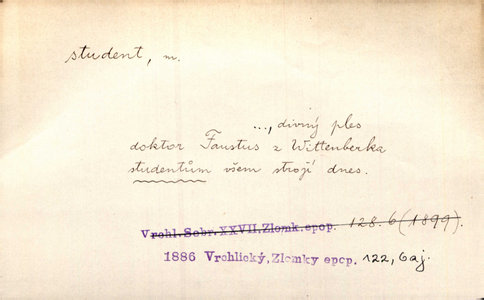 student, m.
..., divný ples
doktor Faustus z Wittenberka
studentům všem strojí dnes.
Vrchl. Sebr. XXVII, Zlomk. epop. 128. 6 (1899).
1886 Vrchlický, Zlomky epop. 122, 6aj.